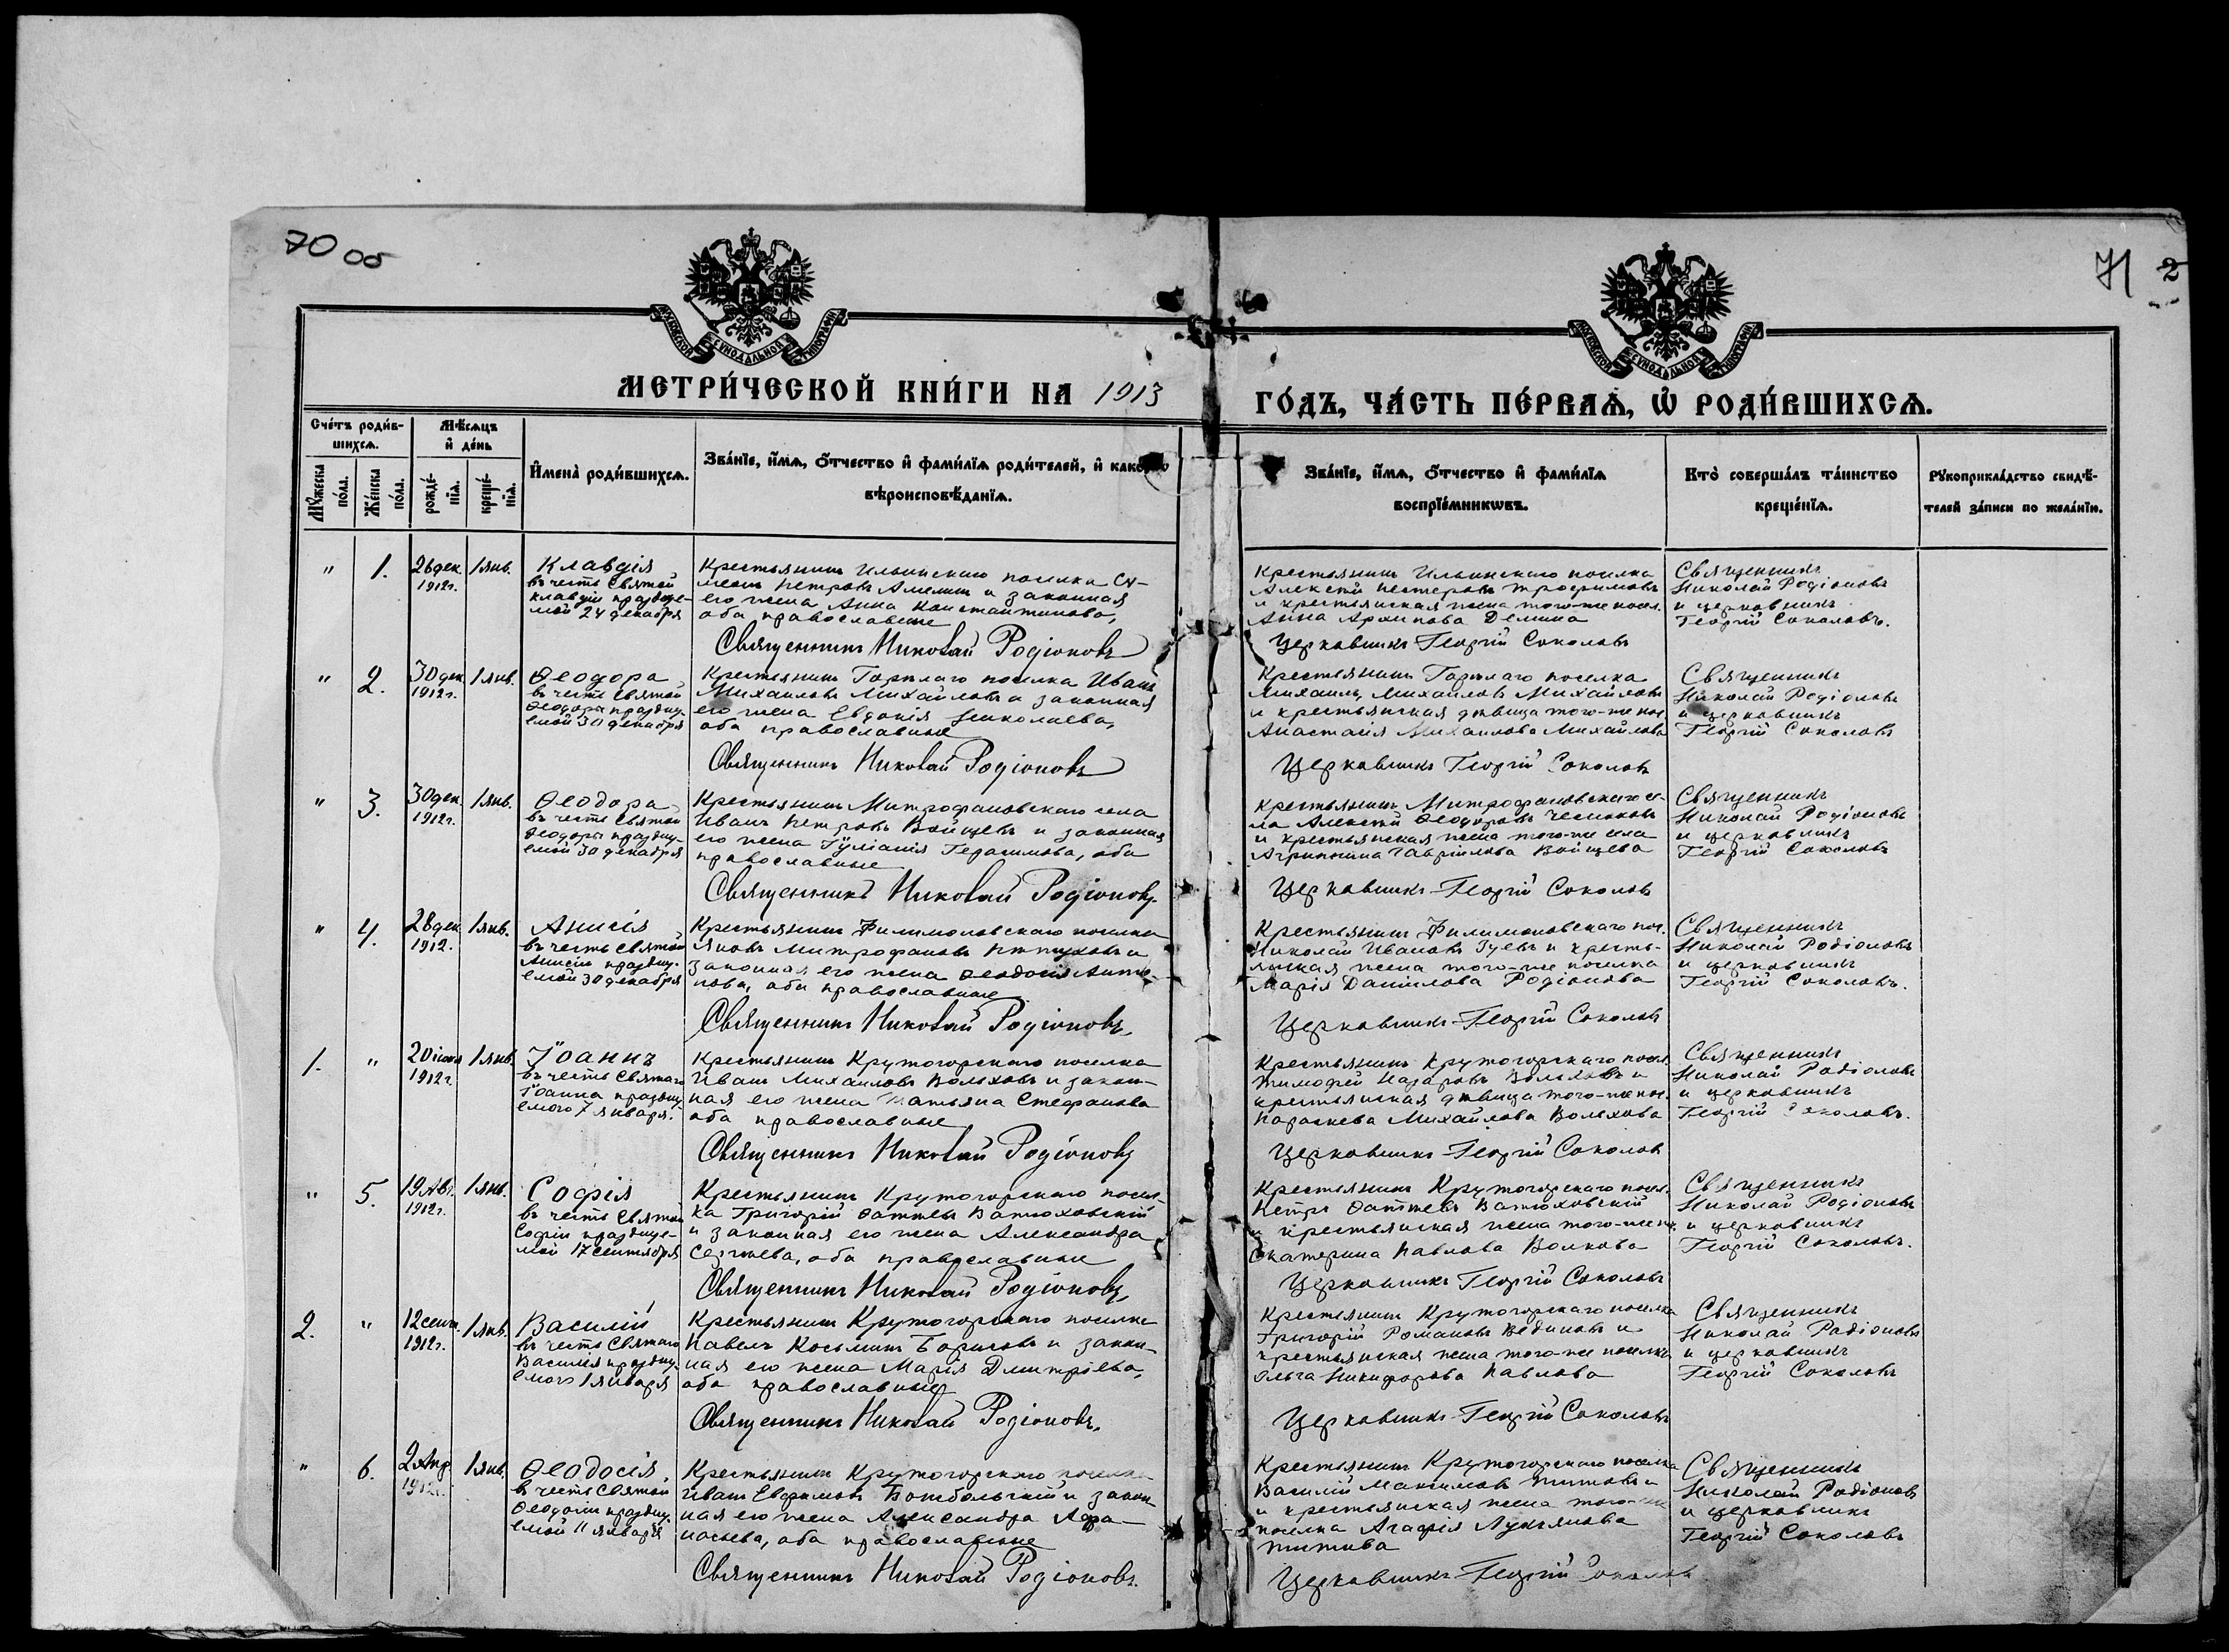 70 об
71 2
МОСКОВСКОЙ СѴНОДАЛЬНОЙ ТИПОГРАФІИ
МОСКОВСКОЙ СѴНОДАЛЬНОЙ ТИПОГРАФІИ
МЕТРИ́ЧЕСКОЙ КНИ́ГИ НА 1913
ГО́ДЪ, ЧА́СТЬ ПЕ́РВАѦ, Ѡ҆ РОДИ́ВШИХСѦ.
Сче́тъ роди́в-
шихсѧ.
Мѣ́сѧцъ
и҆ де́нь
Мꙋ́жеска
по́ла.
Же́нска
по́ла.
рожде́-
нїѧ.
креще́-
нїѧ.
И҆мена̀ роди́вшихсѧ.
Зва́нїе, и҆́мѧ, ѻ҆́тчество и҆ фами́лїѧ роди́телей, и҆ како́гѡ
вѣроисповѣ́данїѧ.
Зва́нїе, и҆́мѧ, ѻ҆́тчество и҆ фами́лїѧ
воспрїе́мникѡвъ.
Кто̀ соверша́лъ та́инство
креще́нїѧ.
Рꙋкоприкла́дство свидѣ́-
телей за́писи по жела́нїю.
" 1. 26 дек. 1912г. 1 янв.
Клавдія
въ честь Святой
Клавдіи празднуе-
мой 24 декабря
Крестьянинъ Ильинскаго поселка Си-
меонъ Петровъ Амелин и законная
его жена Анна Константинова,
оба православные
Священникъ Николай Родіоновъ
Крестьянинъ Ильинскаго поселка
Алексей Нестеровъ Трофимовъ
и крестьянская жена того-же посел.
Анна Архипова Демина
Церковникъ Георгій Соколовъ
Священникъ
Николай Родіоновъ
и церковникъ
Георгій Соколовъ.
" 2. 30 дек. 1912г. 1 янв.
Ѳеодора
въ честь Святой
Ѳеодоры праздну-
емой 30 декабря
Крестьянинъ поселка Иванъ
Михаиловъ Михайловъ и законная
его жена Евдокія Николаева,
оба православные
Священникъ Николай Родіоновъ
Крестьянинъ поселка
Михаилъ Михаиловъ Михайловъ
и крестьянская девица того-же пос.
Анастасія Михаилова Михайлова
Церковникъ Георгій Соколовъ
Священникъ
Николай Родіоновъ
и церковникъ
Георгій Соколовъ
" 3. 30 дек. 1912г. 1 янв.
Ѳеодора
въ честь Святой
Ѳеодоры праздну-
емой 30 декабря
Крестьянинъ Митрофановскаго села
Иванъ Петровъ Войцевъ и законная
его жена Іуліанія Герасимова, оба
православные
Священникъ Николай Родіоновъ
Крестьянинъ Митрофановскаго се-
ла Алексей Ѳеодоровъ Чесноковъ
и крестьянская жена того-же села
Агриппина Гавріилова Войцева
Церковникъ Георгій Соколовъ
Священникъ
Николай Родіоновъ
и церковникъ
Георгій Соколовъ
" 4. 28 дек. 1912. 1 янв.
Анисія
въ честь Святой
Анисіи праздну-
емой 30 декабря
Крестьянинъ Филимоновскаго поселка
Яковъ Митрофановъ Петуховъ и
законная его жена Ѳеодосія Анто-
нова, оба православные
Священникъ Николай Родіоновъ
Крестьянинъ Филимоновскаго пос.
Николай Ивановъ Гуевъ и кресть-
янская жена того-же поселка
Марія Даніилова Родіонова
Церковникъ Георгій Соколовъ
Священникъ
Николай Родіоновъ
и церковникъ
Георгій Соколовъ.
1. " 20 1912г 1 янв.
Іоаннъ
въ честь Святаго
Іоанна праздну-
емаго 7 января.
Крестьянинъ Крутогорскаго поселка
Иванъ Михаиловъ Волковъ и закон-
ная его жена Татьяна Стефанова
оба православные
Священникъ Николай Родіоновъ
Крестьянинъ Крутогорскаго посел.
Тимофей Назаровъ Волковъ и
крестьянская девица того-же пос.
Параскева Михайлова Волкова
Церковникъ Георгій Соколовъ
Священникъ
Николай Родіоновъ
и церковникъ
Георгій Соколовъ.
" 5. 19 Авг. 1912г. 1 янв.
Софія
въ честь Святой
Софіи празднуе-
мой 17 сентября
Крестьянинъ Крутогорскаго посел-
ка Григорій Ватюховскій
и законная его жена Александра
Сергеева, оба православные
Священникъ Николай Родіоновъ
Крестьянинъ Крутогорскаго посел.
Петръ Ватюховскій
и крестьянская жена того-же пос.
Екатерина Павлова Волкова
Церковникъ Георгій Соколовъ
Священникъ
Николай Родіоновъ
и церковникъ
Георгій Соколовъ.
2. " 12 сент. 1912г. 1 янв.
Василій
въ честь Святаго
Василія праздну-
емаго 1 января
Крестьянинъ Крутогорскаго поселка
Павелъ Косьминъ Борисовъ и закон-
ная его жена Марія Димитріева,
оба православные
Священникъ Николай Родіоновъ.
Крестьянинъ Крутогорскаго поселка
Григорій Романовъ и
крестьянская жена того-же поселка
Ольга Никифорова Павлова
Церковникъ Георгій Соколовъ
Священникъ
Николай Родіоновъ
и церковникъ
Георгій Соколовъ
" 6. 2 Апр. 1912г. 1 янв.
Ѳеодосія
въ честь Святой
Ѳеодосіи праздну-
емой 11 января
Крестьянинъ Крутогорскаго поселка
Иванъ Евфимовъ и закон-
ная его жена Александра Афа-
насьева, оба православные
Священникъ Николай Родіоновъ.
Крестьянинъ Крутогорскаго поселка
Василій Максимовъ Титовъ
и крестьянская жена того-же
поселка Агафія Лукьянова
Титова
Церковникъ Георгій Соколовъ
Священникъ
Николай Родіоновъ
и церковникъ
Георгій Соколовъ